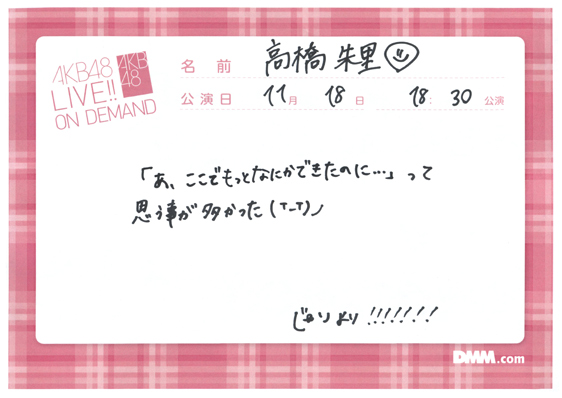 AKB48
LIVE!!
ON DEMAND
AKB
48
名前 高橋朱里
公演日 11月 18日 18:30 公演
「あ、ここでもっとなにかできたのに…」って
思う事が多かった(T_T)ノ
じゅりより!!!!!!!
DMM.com